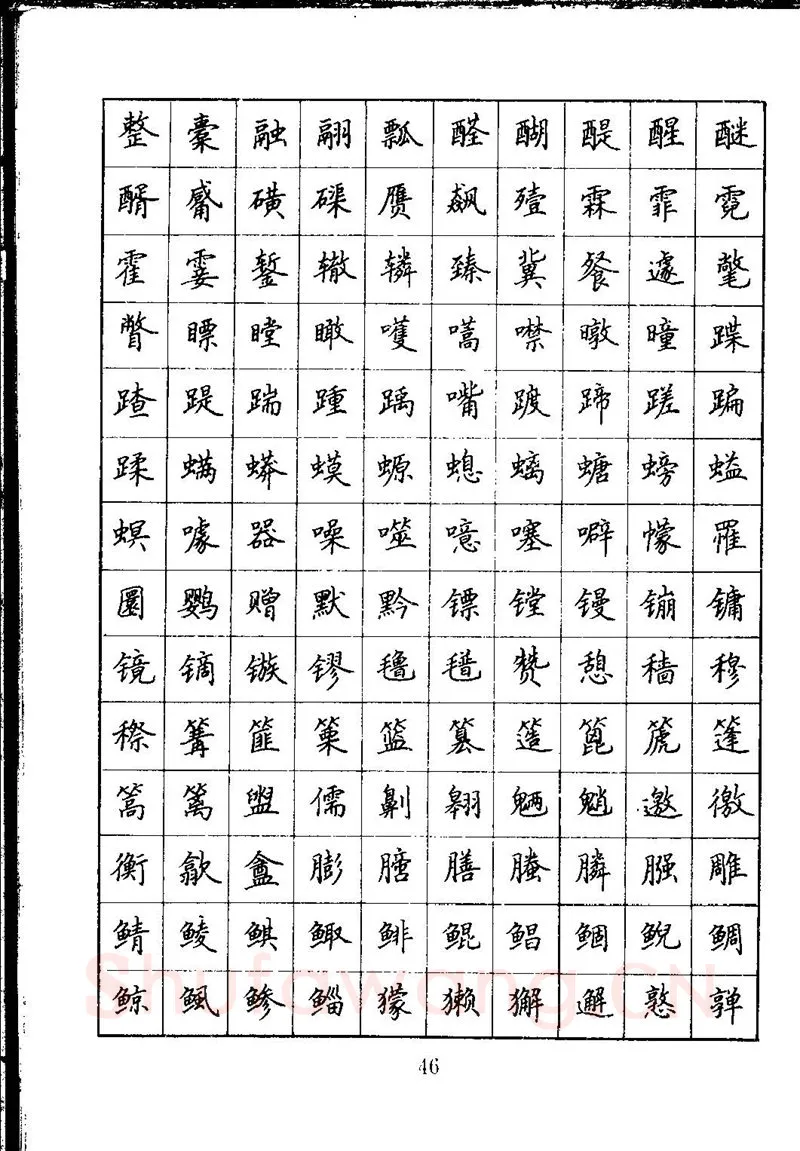 整橐融翮瓢醛醐醍醒醚
醑觱磺磲赝飙殪霖霏霓
霍霎錾辙辚臻冀餐遽氅
瞥瞟瞠瞰嚄嚆噤暾曈蹀
蹅踶踹踵踽嘴踱蹄蹉蹁
蹂螨蟒蟆螈螅螭螗螃螠
螟噱器噪噬噫噻噼幪罹
圜鹦赠默黔镖镗镘镚镛
镜镝镞镠氇氆赞憩穑穆
穄篝篚篥篮篡簉篦篪篷
篙篱盥儒劓翱魉魈邀徼
衡歙盦膨膪膳螣膦膙雕
鲭鲮鲯鲰鲱鲲鲳鲴鲵鲷
鲸鲺鲹鲻獴獭獬邂憝亸
Shufawang.CN
46